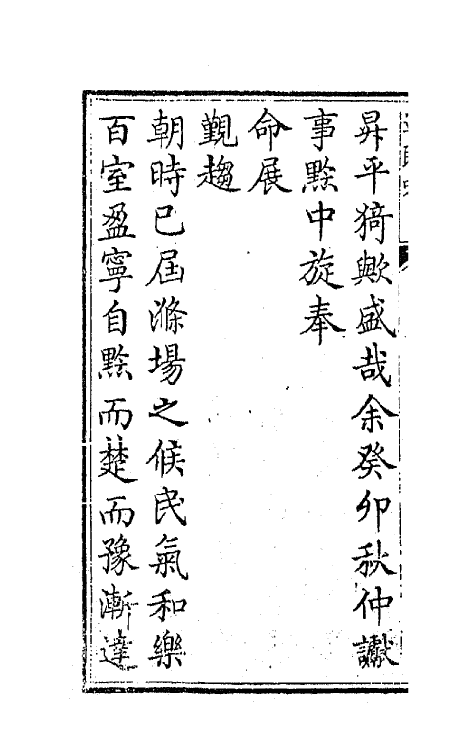 昇平猗歟盛哉余癸卯秋仲讞
事黔中旋奉
命展
覲趨
朝時已屆滌場之候民氣和樂
百室盈寧自黔而楚而豫漸達